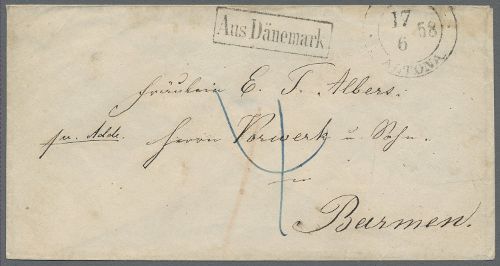 Aus Dänemark
17
6 58
ALTONA
Fräulein E. T. Albers.
pr. Addr. Herrn Vorwerk u. Sohn.
in
Barmen.
4